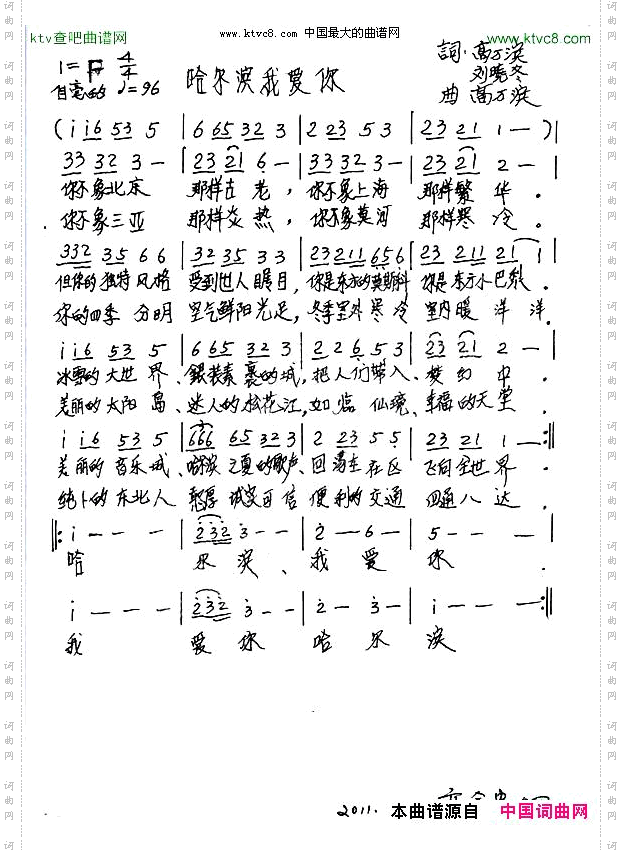 ktv查吧曲谱网
www.ktvc8.com 中国最大的曲谱网
www.ktvc8.com
1=F 4/4
詞:高万滨
刘晓冬
自豪的 ♩=96
哈尔滨我爱你
曲 高万滨
(i i6 53 5 | 6 65 32 3 | 2 23 5 3 | 23 21 1 — )|
33 32 3 — | 23 21 6 — | 33 32 3 — | 23 21 2 — |
你不象北京 那样古老, 你不象上海 那样繁华.
你不象三亚 那样炎热, 你不象莫河 那样寒冷.
332 35 6 6 | 32 35 3 3 | 23 211 656 | 23 211 21 1 |
但你的独特风格 受到世人瞩目, 你是东方的莫斯科 你是东方小巴黎.
你的四季分明 空气鲜阳光足, 冬季室外寒冷 室内暖洋洋.
i i6 53 5 | 665 32 3 | 2 2 6 53 | 23 23 2 — |
冰雪的大世界、銀装素裹的城, 把人们带入、梦幻中.
美丽的太阳岛、迷人的松花江, 如临仙境、幸福的天堂.
i i6 53 5 | 666 65 32 3 | 2 23 5 5 | 23 21 1 — :||
美丽的音乐城、哈滨之夏的歌声、回荡在 飞向全世界.
纯卜的东北人 憨厚诚实可信 便利的交通 四通八达.
||: i — — — | 232 3 — — | 2 — 6 — | 5 — — — |
哈 尔滨、我爱 你
i — — — | 232 3 — — | 2 — 3 — | i — — — :||
我 爱你 哈尔 滨
2011. 本曲谱源自 中国词曲网
词曲网